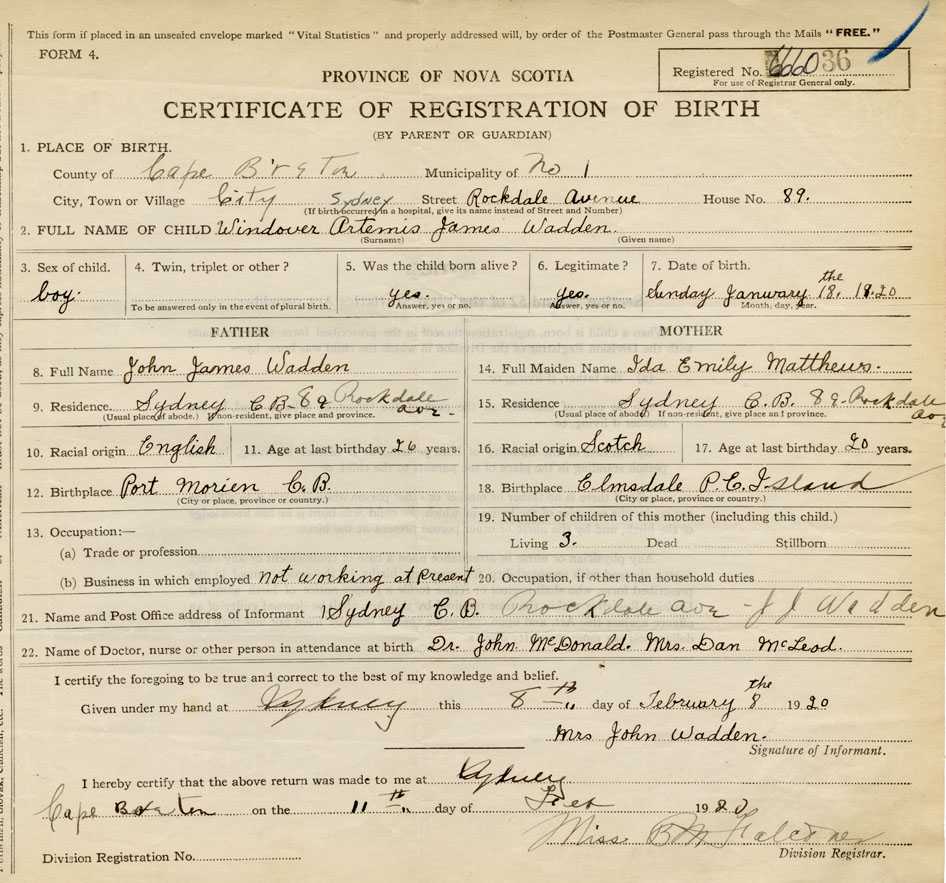 This form if placed in an unsealed envelope marked "Vital Statistics" and properly addressed will, by order of the Postmaster General pass through the Mails "FREE."
FORM 4.
Registered No. 666036
For use of Registrar General only.
PROVINCE OF NOVA SCOTIA
CERTIFICATE OF REGISTRATION OF BIRTH
(BY PARENT OR GUARDIAN)
1. PLACE OF BIRTH.
County of Cape Breton Municipality of No 1
City, Town or Village City Sydney Street Rockdale Avenue House No. 89.
(If birth occurred in a hospital, give its name instead of Street and Number)
2. FULL NAME OF CHILD Windover Artemis James Wadden.
(Surname) (Given name)
3. Sex of child. 4. Twin, triplet or other? 5. Was the child born alive? 6. Legitimate? 7. Date of birth.
boy. yes. yes. Sunday January the 18. 1920
To be answered only in the event of plural birth. Answer, yes or no. Answer, yes or no. Month, day, year.
FATHER MOTHER
8. Full Name John James Wadden 14. Full Maiden Name Ida Emily Matthews.
9. Residence. Sydney C.B. 89 Rockdale ave. 15. Residence Sydney C.B. 89. Rockdale ave
(Usual place of abode.) If non-resident, give place and province. (Usual place of abode) If non-resident, give place and province.
10. Racial origin English 11. Age at last birthday 26 years. 16. Racial origin Scotch 17. Age at last birthday 20 years.
12. Birthplace Port Morien C.B. 18. Birthplace Elmsdale P.E. Island
(City or place, province or country.) (City or place, province or country.)
13. Occupation:— 19. Number of children of this mother (including this child.)
(a) Trade or profession Living 3. Dead Stillborn
(b) Business in which employed not working at present 20. Occupation, if other than household duties
21. Name and Post Office address of Informant Sydney C.B. Rockdale ave - J J Wadden
22. Name of Doctor, nurse or other person in attendance at birth Dr. John McDonald. Mrs. Dan McLeod.
I certify the foregoing to be true and correct to the best of my knowledge and belief.
Given under my hand at Sydney this 8th day of February the 8 1920
Mrs John Wadden.
Signature of Informant.
I hereby certify that the above return was made to me at Sydney
Cape Breton on the 11th day of Feb 1920
Miss B M Falconer
Division Registrar.
Division Registration No.